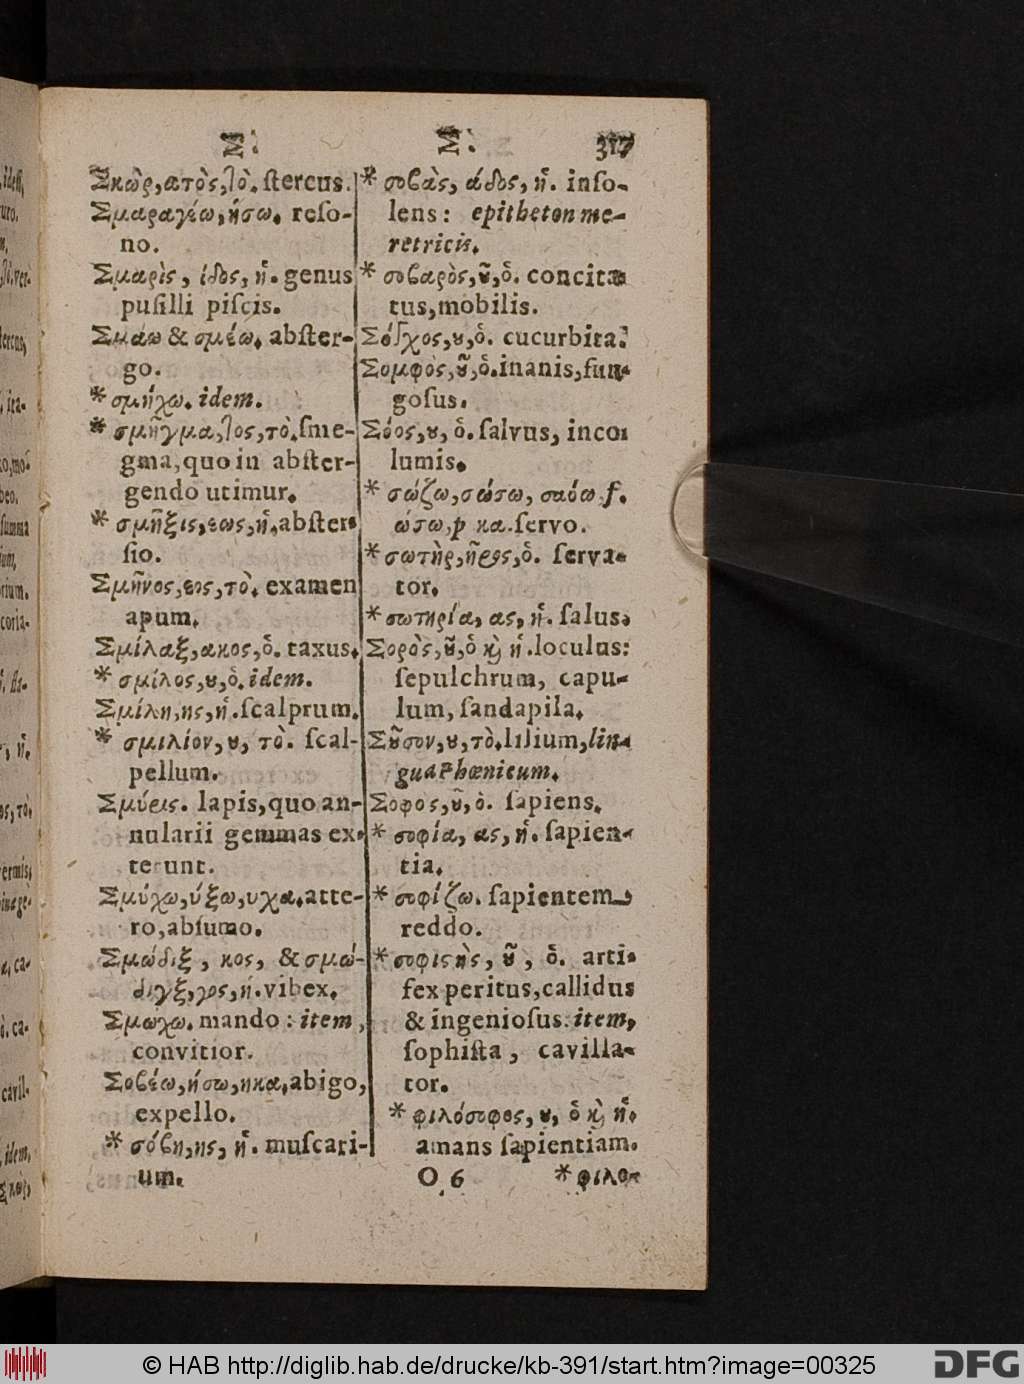 Σ. Σ. 317
Σκὼρ, ατὸς, τὸ. ſtercus.
Σμαραγέω, ήσω. reſo-
no.
Σμαρὶς, ίδος, ἡ. genus
puſilli piſcis.
Σμάω & σμέω. abſter-
go.
* σμήχω. idem.
* σμῆγμα, τος, τὸ. ſme-
gma, quo in abſter-
gendo utimur.
* σμῆξις, εως, ἡ, abſter-
ſio.
Σμῆνος, εος, τὸ. examen
apum.
Σμίλαξ, ακος, ὁ. taxus.
* σμίλος, ȣ, ὁ. idem.
Σμίλη, ης, ἡ. ſcalprum.
* σμιλίον, ȣ, τὸ. ſcal-
pellum.
Σμύρις. lapis, quo an-
nularii gemmas ex-
terunt.
Σμύχω, ύξω, υχα. atte-
ro, abſumo.
Σμώδιξ, κος, & σμώ-
διγξ, γος, ἡ. vibex.
Σμώχω. mando: item,
convitior.
Σοβέω, ήσω, ηκα, abigo,
expello.
* σόβη, ης, ἡ. muſcari-
um.
* σοβὰς, άδος, ἡ. inſo-
lens: epitheton me-
retricis.
* σοβαρὸς, ȣ͂, ὁ. concita-
tus, mobilis.
Σόγχος, ȣ, ὁ. cucurbita.
Σομφὸς, ȣ͂, ὁ. inanis, fun-
goſus.
Σόος, ȣ, ὁ. ſalvus, inco-
lumis.
* σώζω, σώσω, σαόω. f.
ώσω, p κα. ſervo.
* σωτὴρ, ῆρος, ὁ. ſerva-
tor.
* σωτηρία, ας, ἡ. ſalus.
Σορὸς, ȣ͂, ὁ ϗ ἡ. loculus:
ſepulchrum, capu-
lum, ſandapila.
Σȣ͂σον, ȣ, τὸ. lilium, lin-
gua Phœnicum.
Σοφος, ȣ͂, ὁ. ſapiens.
* σοφία, ας, ἡ. ſapien-
tia.
* σοφίζω. ſapientem
reddo.
* σοφιςὴς, ȣ͂, ὁ. arti-
fex peritus, callidus
& ingenioſus: item,
ſophiſta, cavilla-
tor.
* φιλόσοφος, ȣ, ὁ ϗ ἡ.
amans ſapientiam.
O 6 * φιλο-
© HAB http://diglib.hab.de/drucke/kb-391/start.htm?image=00325
DFG